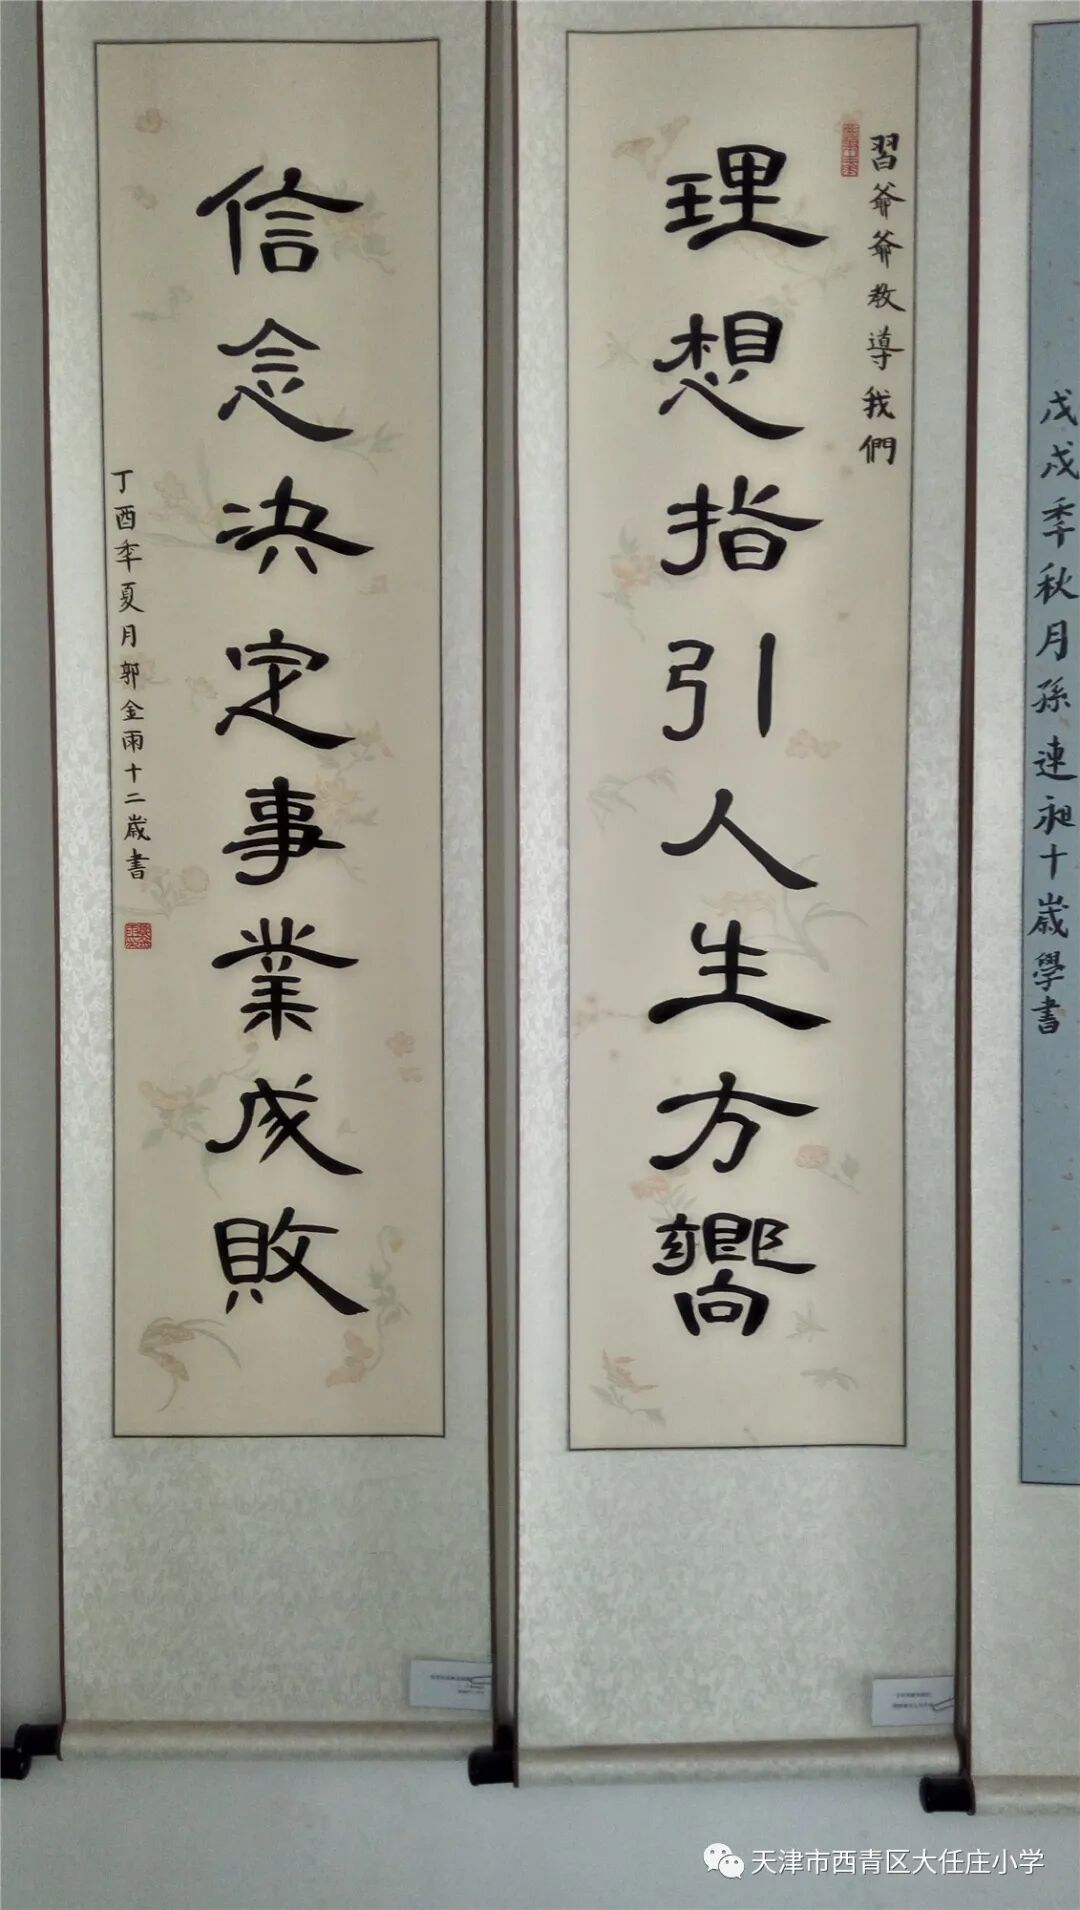 習爺爺教導我們
理想指引人生方嚮
信念決定事業成敗
丁酉年夏月郭金雨十二歲書
戊戌季秋月孫連昶十歲學書
天津市西青区大任庄小学